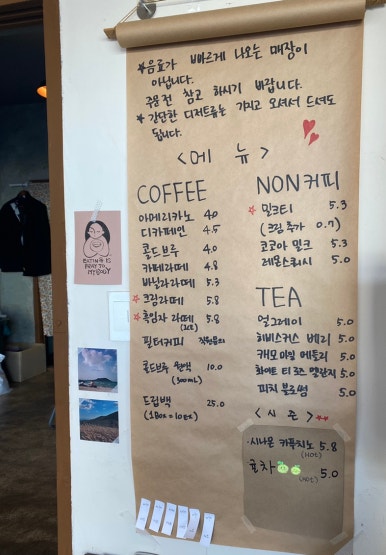 ★음료가 빠르게 나오는 매장이
아닙니다.
주문 전 참고 하시기 바랍니다.
★간단한 디저트류는 가지고 오셔서 드셔도
됩니다.
<메 뉴>
COFFEE
아메리카노 4.0
디카페인 4.5
콜드브루 4.0
카페라떼 4.8
바닐라라떼 5.3
☆크림라떼 5.8
☆흑임자 라떼 5.8
(ICE)
필터커피 직원문의
콜드브루 원액 10.0
(300mL)
드립백 25.0
(1Box=10EX)
NON커피
☆밀크티 5.3
(크림 추가 0.7)
코코아 밀크 5.3
레몬스쿼시 5.0
TEA
얼그레이 5.0
히비스커스 베리 5.0
캐모마일 메들리 5.0
화이트 티 로즈 멜란지 5.0
피치 블로썸 5.0
<시 즌>★★
·시나몬 카푸치노 5.8
(HOT)
·귤차 5.0
(HOT)
EATING IS
PRAY TO
MY BODY